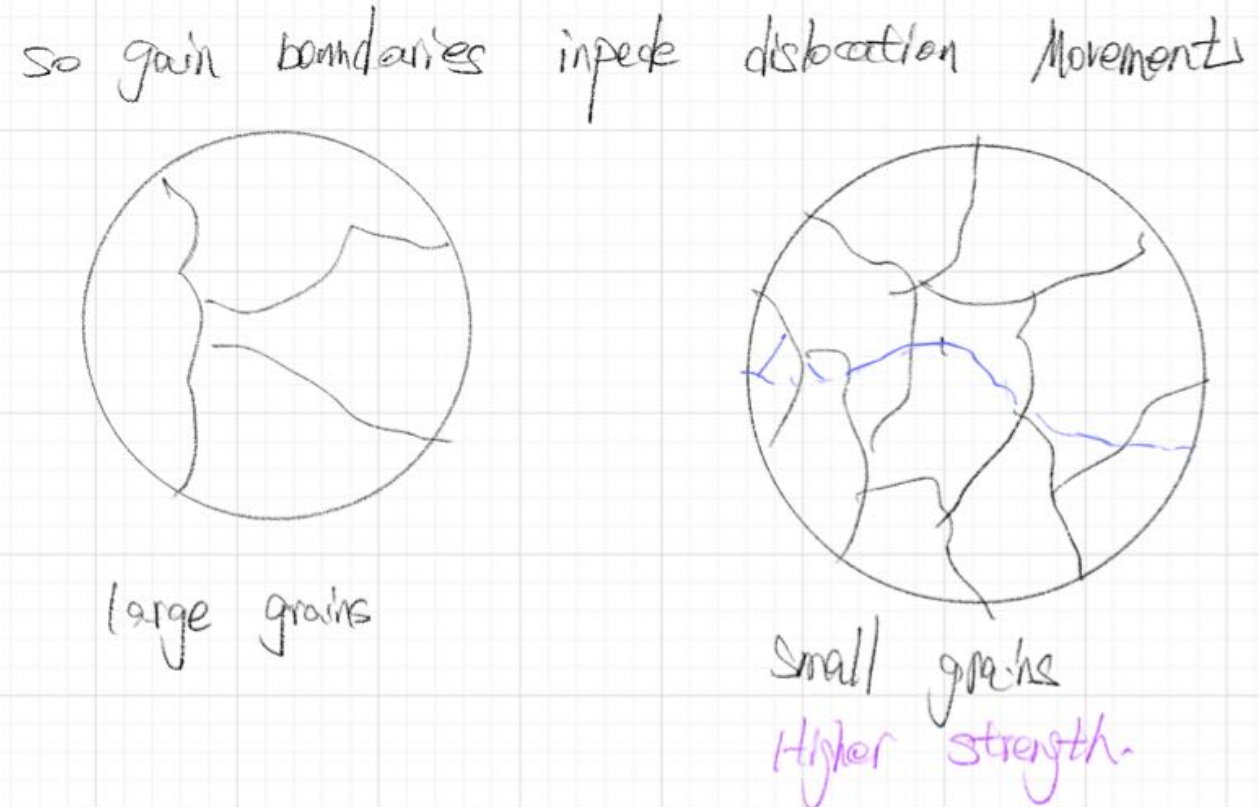 so gain boundaries inpede dislocation Movements
large grains
small grains
Higher strength.